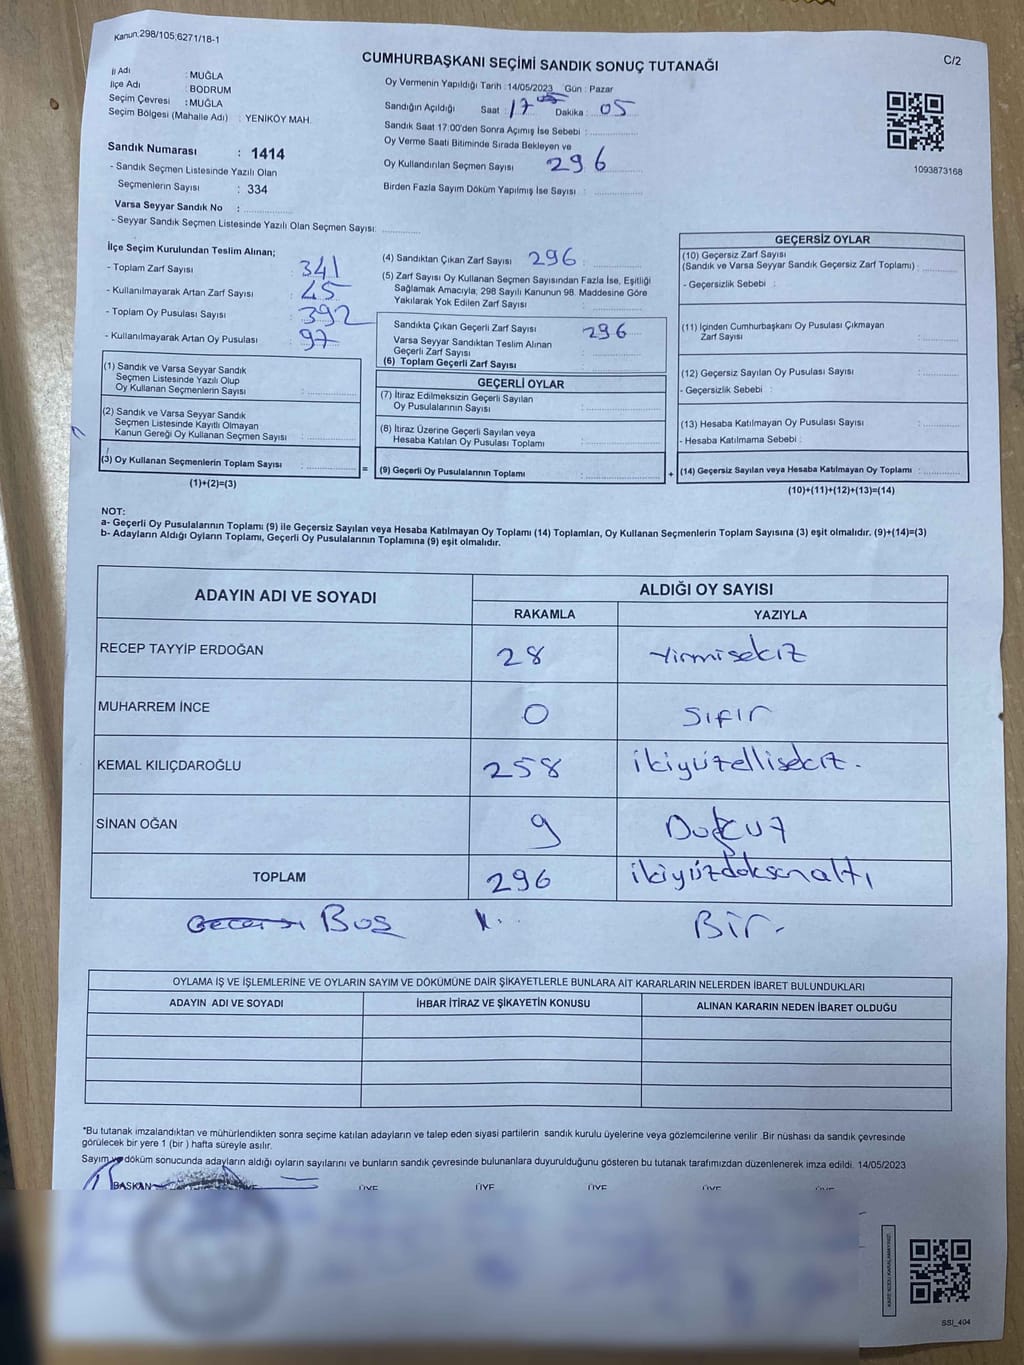 Kanun:298/105,6271/18-1
C/2
CUMHURBAŞKANI SEÇİMİ SANDIK SONUÇ TUTANAĞI
İl Adı : MUĞLA
İlçe Adı : BODRUM
Seçim Çevresi : MUĞLA
Seçim Bölgesi (Mahalle Adı) : YENİKÖY MAH.
Oy Vermenin Yapıldığı Tarih : 14/05/2023 Gün : Pazar
Sandığın Açıldığı Saat : 17 Dakika : 05
Sandık Saat 17:00'den Sonra Açımış İse Sebebi :
Oy Verme Saati Bitiminde Sırada Bekleyen ve
Oy Kullandırılan Seçmen Sayısı 296
Birden Fazla Sayım Döküm Yapılmış İse Sayısı :
1093873168
Sandık Numarası : 1414
- Sandık Seçmen Listesinde Yazılı Olan
Seçmenlerin Sayısı : 334
Varsa Seyyar Sandık No :
- Seyyar Sandık Seçmen Listesinde Yazılı Olan Seçmen Sayısı:
İlçe Seçim Kurulundan Teslim Alınan;
- Toplam Zarf Sayısı : 341
- Kullanılmayarak Artan Zarf Sayısı : 45
- Toplam Oy Pusulası Sayısı : 392
- Kullanılmayarak Artan Oy Pusulası : 97
(1) Sandık ve Varsa Seyyar Sandık
Seçmen Listesinde Yazılı Olup
Oy Kullanan Seçmenlerin Sayısı :
(2) Sandık ve Varsa Seyyar Sandık
Seçmen Listesinde Kayıtlı Olmayan
Kanun Gereği Oy Kullanan Seçmen Sayısı :
(3) Oy Kullanan Seçmenlerin Toplam Sayısı : =
(1)+(2)=(3)
(4) Sandıktan Çıkan Zarf Sayısı 296
(5) Zarf Sayısı Oy Kullanan Seçmen Sayısından Fazla İse, Eşitliği
Sağlamak Amacıyla, 298 Sayılı Kanunun 98. Maddesine Göre
Yakılarak Yok Edilen Zarf Sayısı :
Sandıkta Çıkan Geçerli Zarf Sayısı 296
Varsa Seyyar Sandıktan Teslim Alınan
Geçerli Zarf Sayısı :
(6) Toplam Geçerli Zarf Sayısı :
GEÇERLİ OYLAR
(7) İtiraz Edilmeksizin Geçerli Sayılan
Oy Pusulalarının Sayısı :
(8) İtiraz Üzerine Geçerli Sayılan veya
Hesaba Katılan Oy Pusulası Toplamı :
(9) Geçerli Oy Pusulalarının Toplamı : +
GEÇERSİZ OYLAR
(10) Geçersiz Zarf Sayısı
(Sandık ve Varsa Seyyar Sandık Geçersiz Zarf Toplamı) :
- Geçersizlik Sebebi :
(11) İçinden Cumhurbaşkanı Oy Pusulası Çıkmayan
Zarf Sayısı :
(12) Geçersiz Sayılan Oy Pusulası Sayısı :
- Geçersizlik Sebebi :
(13) Hesaba Katılmayan Oy Pusulası Sayısı :
- Hesaba Katılmama Sebebi :
(14) Geçersiz Sayılan veya Hesaba Katılmayan Oy Toplamı :
(10)+(11)+(12)+(13)=(14)
NOT:
a- Geçerli Oy Pusulalarının Toplamı (9) ile Geçersiz Sayılan veya Hesaba Katılmayan Oy Toplamı (14) Toplamları, Oy Kullanan Seçmenlerin Toplam Sayısına (3) eşit olmalıdır. (9)+(14)=(3)
b- Adayların Aldığı Oyların Toplamı, Geçerli Oy Pusulalarının Toplamına (9) eşit olmalıdır.
ADAYIN ADI VE SOYADI ALDIĞI OY SAYISI
RAKAMLA YAZIYLA
RECEP TAYYİP ERDOĞAN 28 Yirmisekiz
MUHARREM İNCE 0 Sıfır
KEMAL KILIÇDAROĞLU 258 ikiyüzellisekiz.
SİNAN OĞAN 9 Dokuz
TOPLAM 296 ikiyüzdoksanaltı
Boş Bir.
OYLAMA İŞ VE İŞLEMLERİNE VE OYLARIN SAYIM VE DÖKÜMÜNE DAİR ŞİKAYETLERLE BUNLARA AİT KARARLARIN NELERDEN İBARET BULUNDUKLARI
ADAYIN ADI VE SOYADI İHBAR İTİRAZ VE ŞİKAYETİN KONUSU ALINAN KARARIN NEDEN İBARET OLDUĞU
*Bu tutanak imzalandıktan ve mühürlendikten sonra seçime katılan adayların ve talep eden siyasi partilerin sandık kurulu üyelerine veya gözlemcilerine verilir. Bir nüshası da sandık çevresinde
görülecek bir yere 1 (bir) hafta süreyle asılır.
Sayım ve döküm sonucunda adayların aldığı oyların sayılarını ve bunların sandık çevresinde bulunanlara duyurulduğunu gösteren bu tutanak tarafımızdan düzenlenerek imza edildi. 14/05/2023
BAŞKAN ÜYE ÜYE ÜYE ÜYE ÜYE
SSI_404